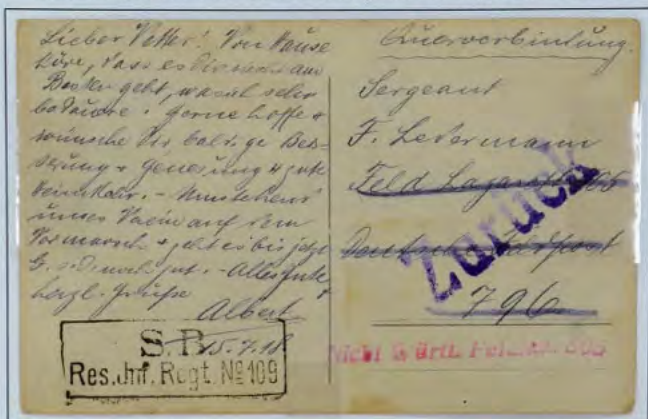 Lieber Vetter! Von Hause
höre, dass es Dir nicht am
Besten geht, was ich sehr
bedaure. Gerne hoffe &
wünsche Dir baldige Bes-
serung & Genesung & gute
Heimkehr. -
unser Verein auf dem
Vormarsch & geht es bis jetzt
G. s. D. noch gut. - Alles Gute &
herzl. Grüsse
Albert
15.7.18
S.B.
Res.Jnf.Regt. № 109
Querverbindung.
Sergeant
F. Ledermann
Feld Lazarett
Deutsche Feldpost
796
Zurück